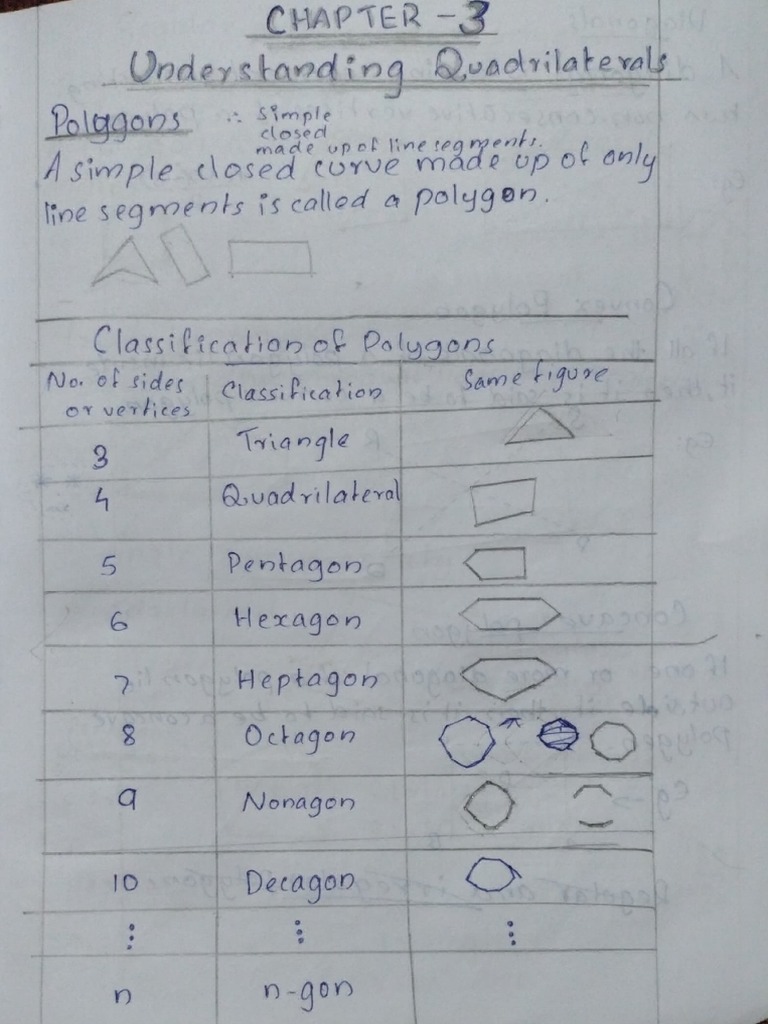 CHAPTER - 3
Understanding Quadrilaterals
Polygons ∴ simple
closed
made up of line segments.
A simple closed curve made up of only
line segments is called a polygon.
Classification of Polygons
No. of sides or vertices Classification Same figure
3 Triangle
4 Quadrilateral
5 Pentagon
6 Hexagon
7 Heptagon
8 Octagon
9 Nonagon
10 Decagon
⋮ ⋮ ⋮
n n-gon